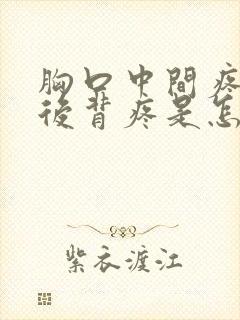 胸口中間疼
後背疼是怎
紫衣渡江